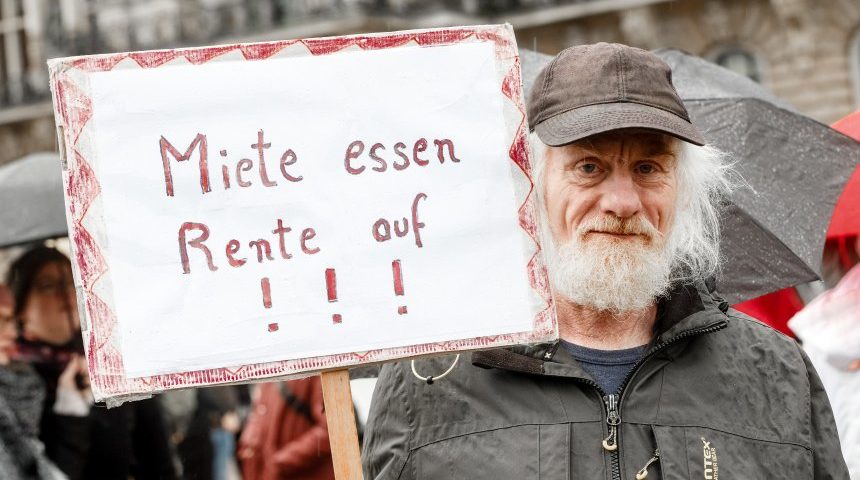 Miete essen
Rente auf
! ! !